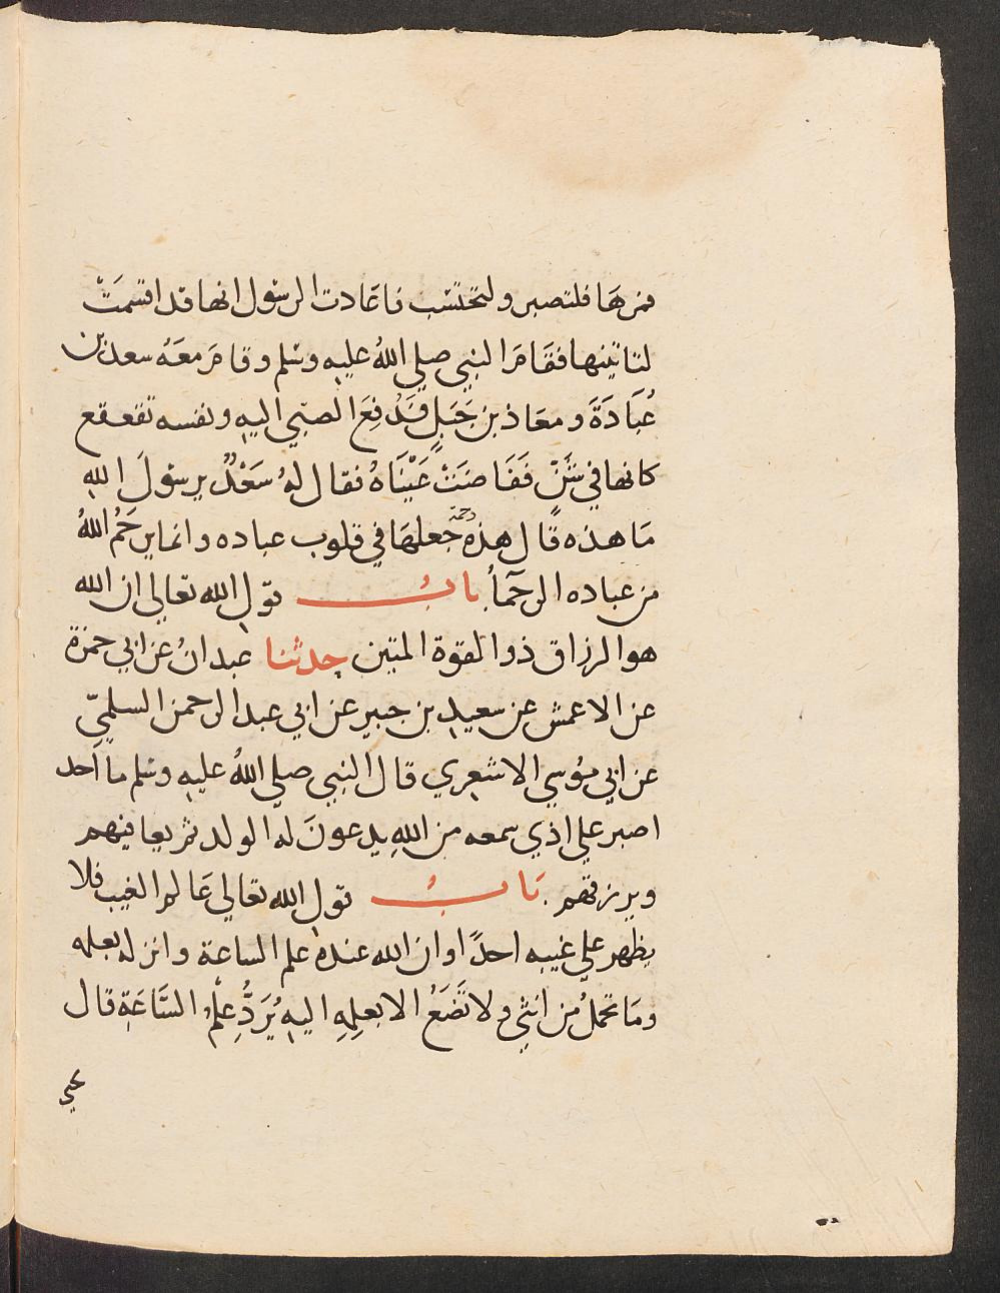 فمرهَا فلتصبر ولتحتسب فاعَادت الرسول انها قد اقسمَتْ
لتاتينها فقَامَ النبي صلي اللهُ عليهِ وسَلم وقامَ معَهُ سعد بن
عُبَادَةَ ومعَاذ بن جَبَلٍ فَدُفِعَ الصبي اليهِ ونفسه تقعقع
كانها في شَنٍّ فَفَاضَتْ عَيْنَاهُ فقال لهُ سَعْدٌ يرسُولَ اللهِ
مَا هذه قال هذه رحمة جعلهَا في قلوب عباده وانما يرحَمُ اللهُ
من عباده الرحَمَآءُ بابُ قول الله تعالي ان الله
هو الرزاق ذو القوة المتين حدثنا عبدانُ عن ابي حمزة
عن الاعمش عن سعيدِ بن جبير عن ابي عبد الرحمن السلميّ
عن ابي مُوسي الاشعري قال النبي صلي اللهُ عليهِ وسَلم ما احد
اصبر علي اذي سمعه من اللهِ يدعونَ له الولد ثم يعافيهم
ويرزقهم بَابُ قول الله تعالي عَالم الغيب فلا
يظهر علي غيبه احدًا وان الله عنده علم الساعة وانزله بعلمه
ومَا تحملُ من انثي ولا تَضَعُ الا بعلمِهِ اليهِ يُرَدُّ عِلْمُ السَّاعَةِ قال
يحيي